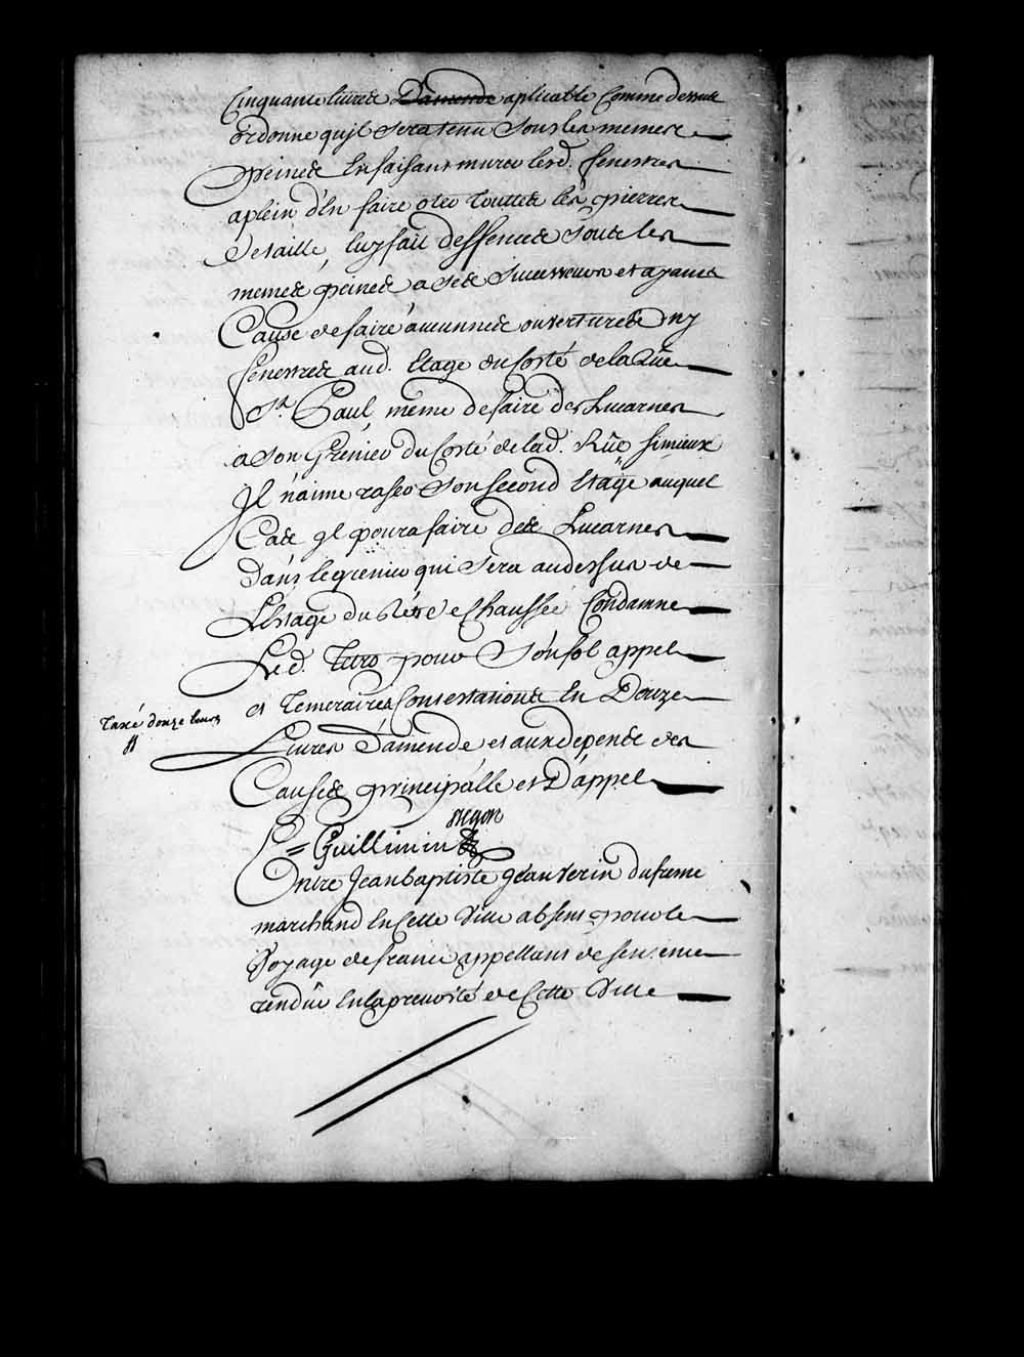 Cinquante livres Damende aplicable Comme dessus
ordonne qujl sera tenu sous les memes
peines En faisant murer lesd. fenestres
aplein d'En faire oter Touttes les pierres
de taille, luy fait deffences sous les
memes peines a ses Successeurs et ayans
Cause de faire aucunnes ouvertures ny
fenestres aud. Etage du Costé de la Rüe
St. Paul, même de faire des Lucarnes
a son Grenier du Costé de lad. Rüe si mieux
Jl n'aime raser son second Etage auquel
Cas jl poura faire des Lucarnes
dans le grenier qui sera audessus de
L'Etage du Réts de Chaussée Condamne
Led. pour son fol appel
et Temeraires Contestations En Douze
Taxé douze livres
Livres D'amende et aux depens des
Causes principalle et D'appel
Guillimin
Entre Jean baptiste Jeanverin dufresne
marchand En Cette Ville absent pour le
Voyage de france appellant de sentence
rendüe En la prevosté de Cette Ville